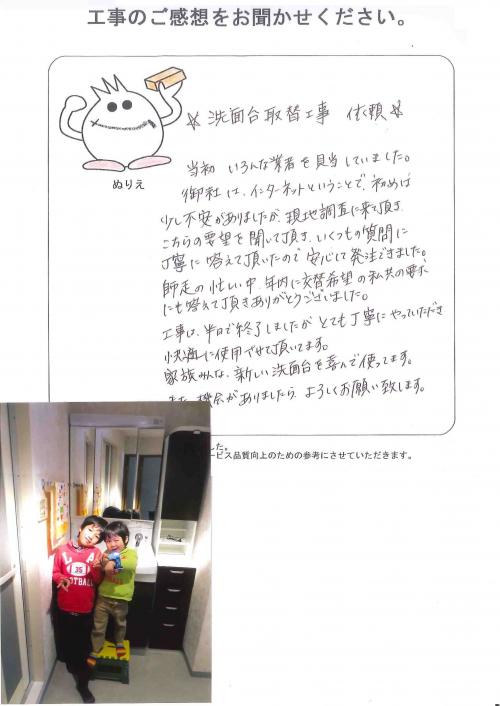 工事のご感想をお聞かせください。
ぬりえ
☆洗面台取替工事 依頼☆
当初 いろんな業者を見当していました。
御社は、インターネットということで、初めは
少し不安がありましたが、現地調査に来て頂き、
こちらの要望を聞いて頂き、いくつもの質問に
丁寧に答えて頂いたので安心して発注できました。
師走の忙しい中、年内に交替希望の私共の要求
にも答えて頂きありがとうございました。
工事は、半日で終了しましたがとても丁寧にやっていただき
快適に使用させて頂いてます。
家族みんな、新しい洗面台を喜んで使ってます。
また 機会がありましたら、よろしくお願い致します。
した。
ービス品質向上のための参考にさせていただきます。
35
FOOTBALL